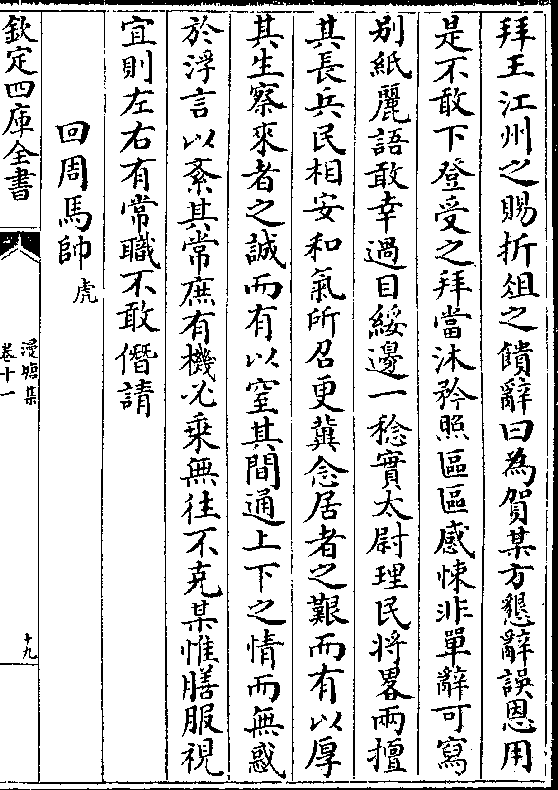 拜王江州之賜折俎之饋辭曰為賀某方懇辭誤恩用
是不敢下登受之拜當沐矜照區區感悚非單辭可寫
别紙麗語敢幸過目綏邊一稔實太尉理民將畧兩擅
其長兵民相安和氣所召更冀念居者之艱而有以厚
其生察來者之誠而有以窒其間通上下之情而無惑
於浮言以紊其常庶有機必乗無往不克某惟膳服視
宜則左右有常職不敢僭請
回周馬帥虎
欽定四庫全書
漫塘集
卷十一
十九